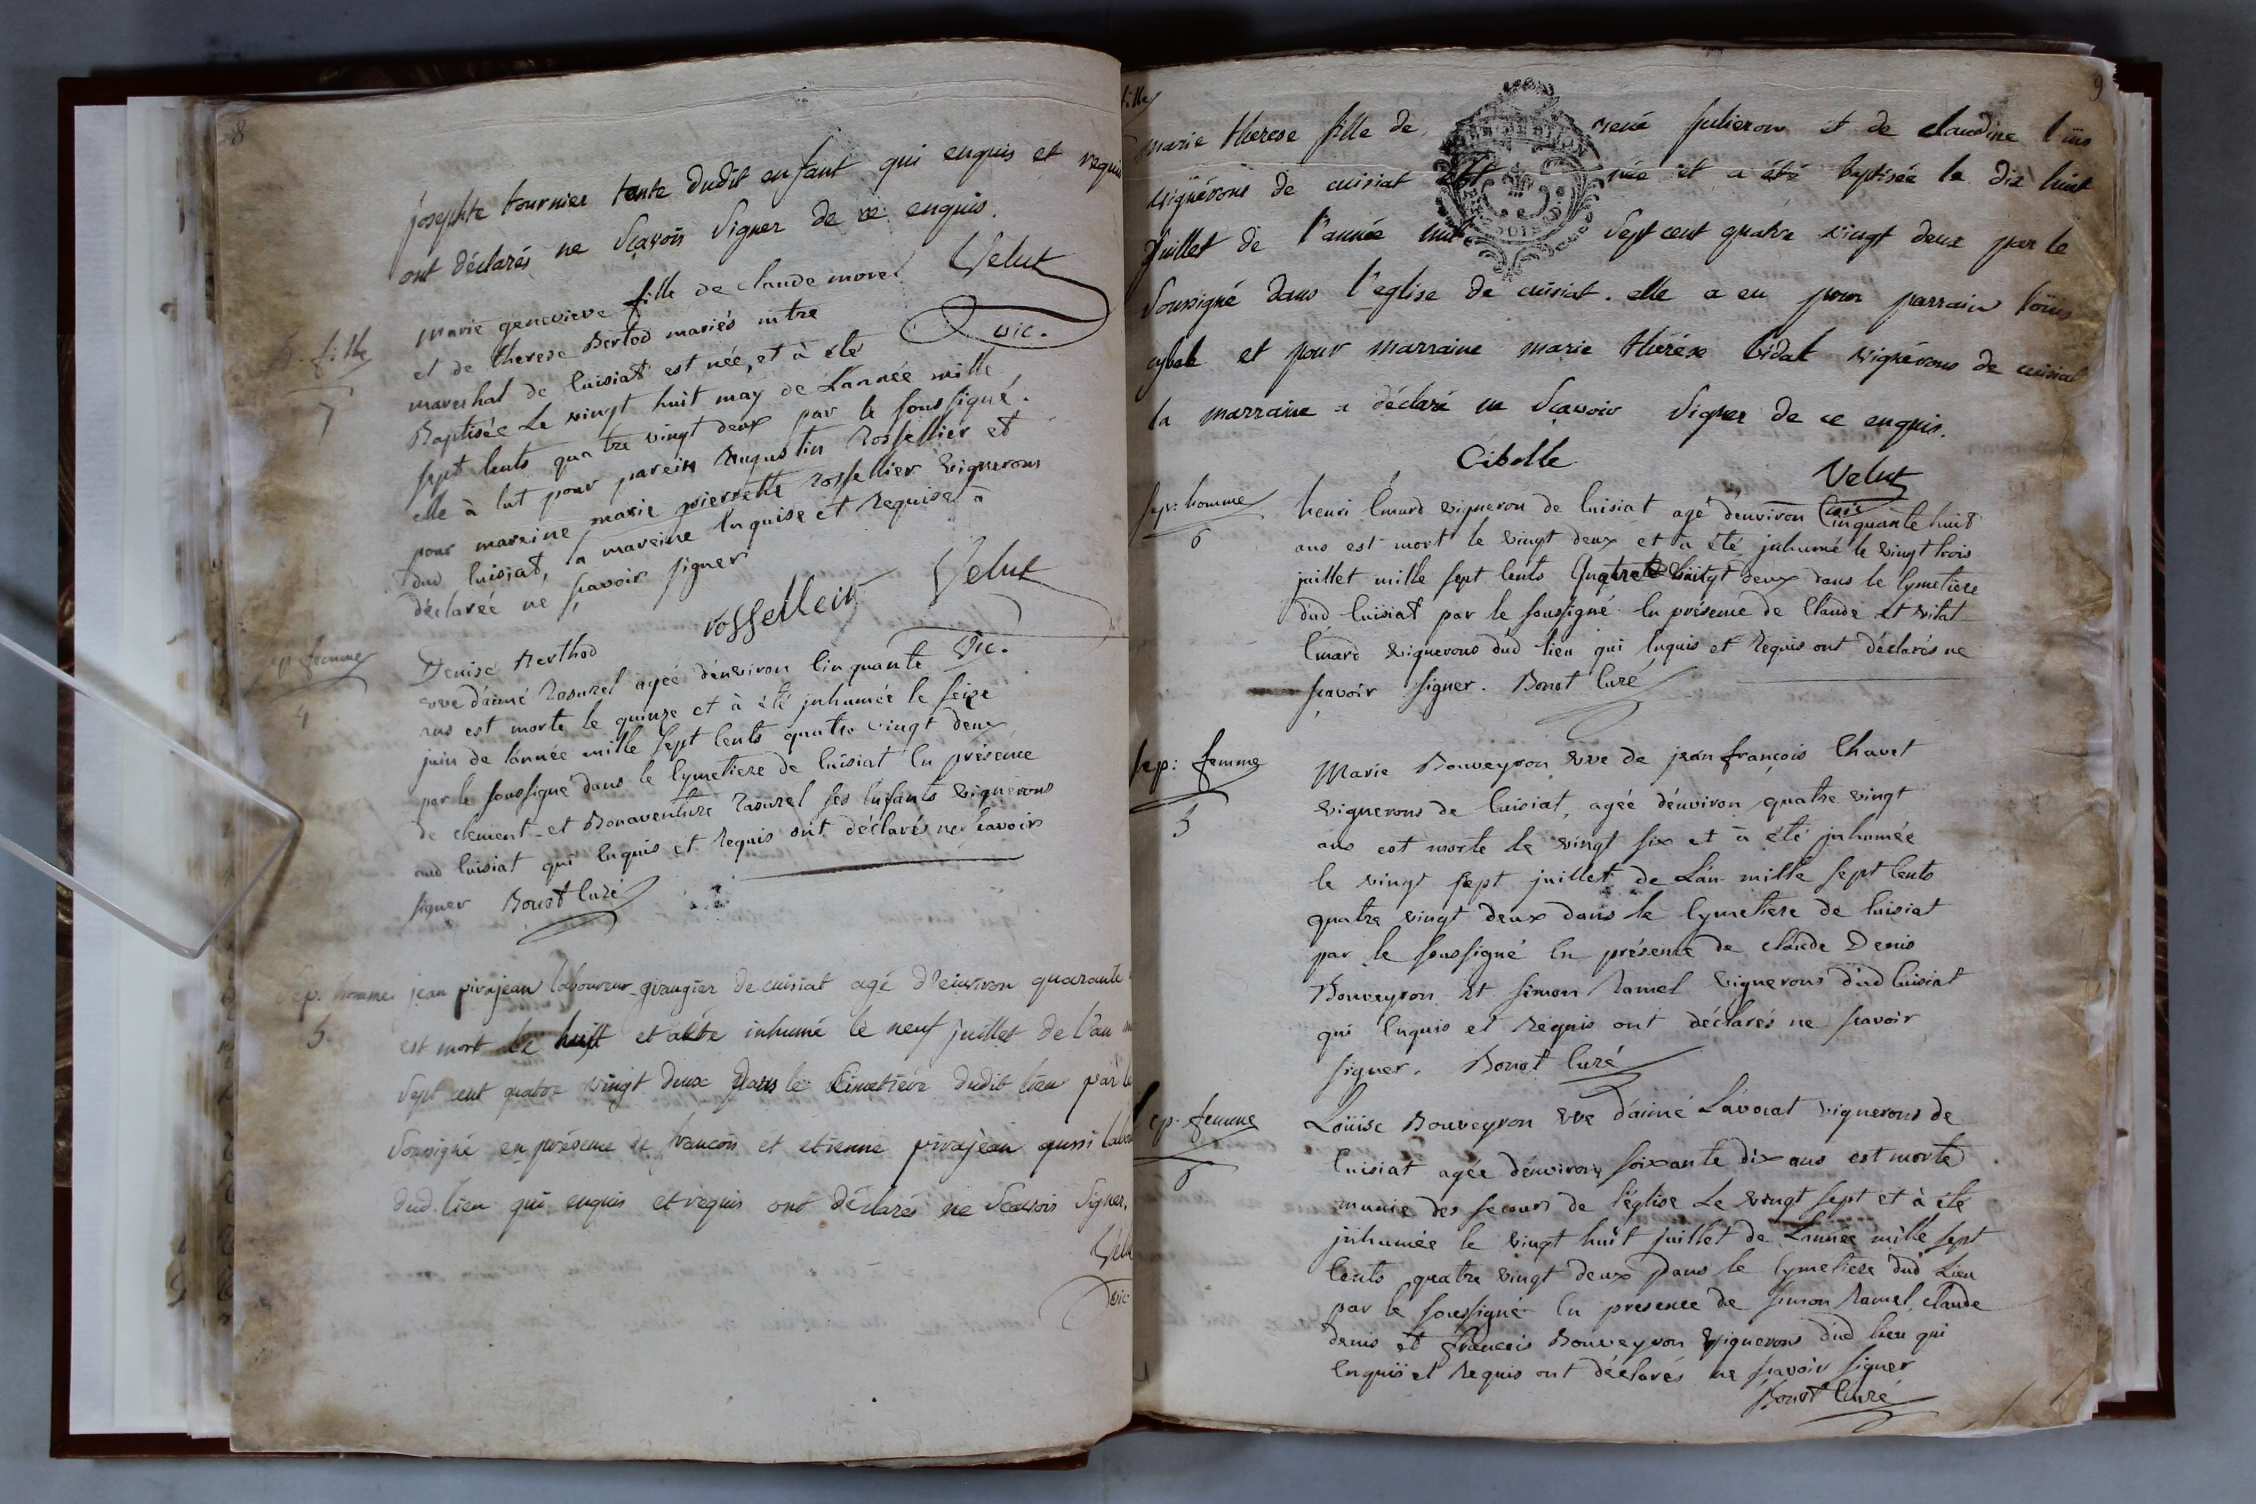 8
josephte tournier tante dudit enfant qui enquis et requis
ont déclarés ne sçavoir signer de ce enquis.
Velut
vic.
b. fille
7
marie genevieve fille de claude morel
et de therese Bertod mariés mtre
mareshal de Cuisiat est née, et à été
Baptisée Le vingt huit may de L'année mille
sept Cents quatre vingt deux par le soussigné.
elle à Eut pour parein Augustin Rossellier et
pour mareine marie pierrette Rossellier vignerons
dud Cuisiat, la mareine Enquise et Requise à
déclarée ne sçavoir signer
rosselleir Velut
vic.
sep. femme
4
Denise Berthod
vve d'aimé Rasurel agée d'environ Cinquante
ans est morte le quinze et à été inhumée le seize
juin de l'année mille sept Cents quatre vingt deux
par le soussigné dans le Cymetiere de Cuisiat En présence
de Clement et Bonaventure Rasurel ses Enfants vignerons
dud Cuisiat qui Enquis et Requis ont déclarés ne sçavoir
signer Bonot Curé
Sep. homme
5.
jean pirajean laboureur grangier de cuisiat agé d'environ quarante
est mort le huit et a été inhumé le neuf juillet de l'an
sept cent quatre vingt deux dans le Cimetiére dudit lieu par le
soussigné en présence de francois et etienne pirajean aussi
dud. lieu qui enquis et requis ont déclarés ne scavoir signer.
Velu
vic
9
fille
Marie therese fille de rené julieron et de claudine
vignérons de cuisiat est née et a été baptisée le dix huit
juillet de l'année mil sept cent quatre vingt deux par le
soussigné dans l'eglise de cuisiat. elle a eu pour parrain loüis
et pour marraine marie thérése vidal vignérons de cuisiat
la marraine a déclaré ne scavoir signer de ce enquis.
Cibelle Velut
vic
sep: homme
6
henri Emard vigneron de Cuisiat agé d'environ Cinquante huit
ans est mort le vingt deux et à été inhumé le vingt trois
juillet mille sept Cents Quatre vingt deux dans le Cymetiere
dud Cuisiat par le soussigné En présence de Claude et vital
Emard vignerons dud lieu qui Enquis et Requis ont déclarés ne
sçavoir signer. Bonot Curé
sep: femme
5
Marie Bouveyron vve de jean françois Chavet
vignerons de Cuisiat, agée d'environ quatre vingt
ans est morte le vingt six et à été inhumée
le vingt sept juillet de L'an mille sept Cents
quatre vingt deux dans le Cymetiere de Cuisiat
par le soussigné En présence de claude Denis
Bouveyron et simon Ramel vignerons dud Cuisiat
qui Enquis et Requis ont déclarés ne sçavoir
signer. Bonot Curé
sep. femme
6
Loüise Bouveyron vve d'aimé L'avocat vignerons de
Cuisiat agée d'environ soixante dix ans est morte
munie des secours de l'église Le vingt sept et à été
inhumée le vingt huit juillet de L'année mille sept
Cents quatre vingt deux Dans le Cymetiere dud Lieu
par le soussigné En presence de simon Ramel, claude
denis et françois Bouveyron vignerons dud lieu qui
Enquis et Requis ont déclarés ne sçavoir signer
Bonot Curé